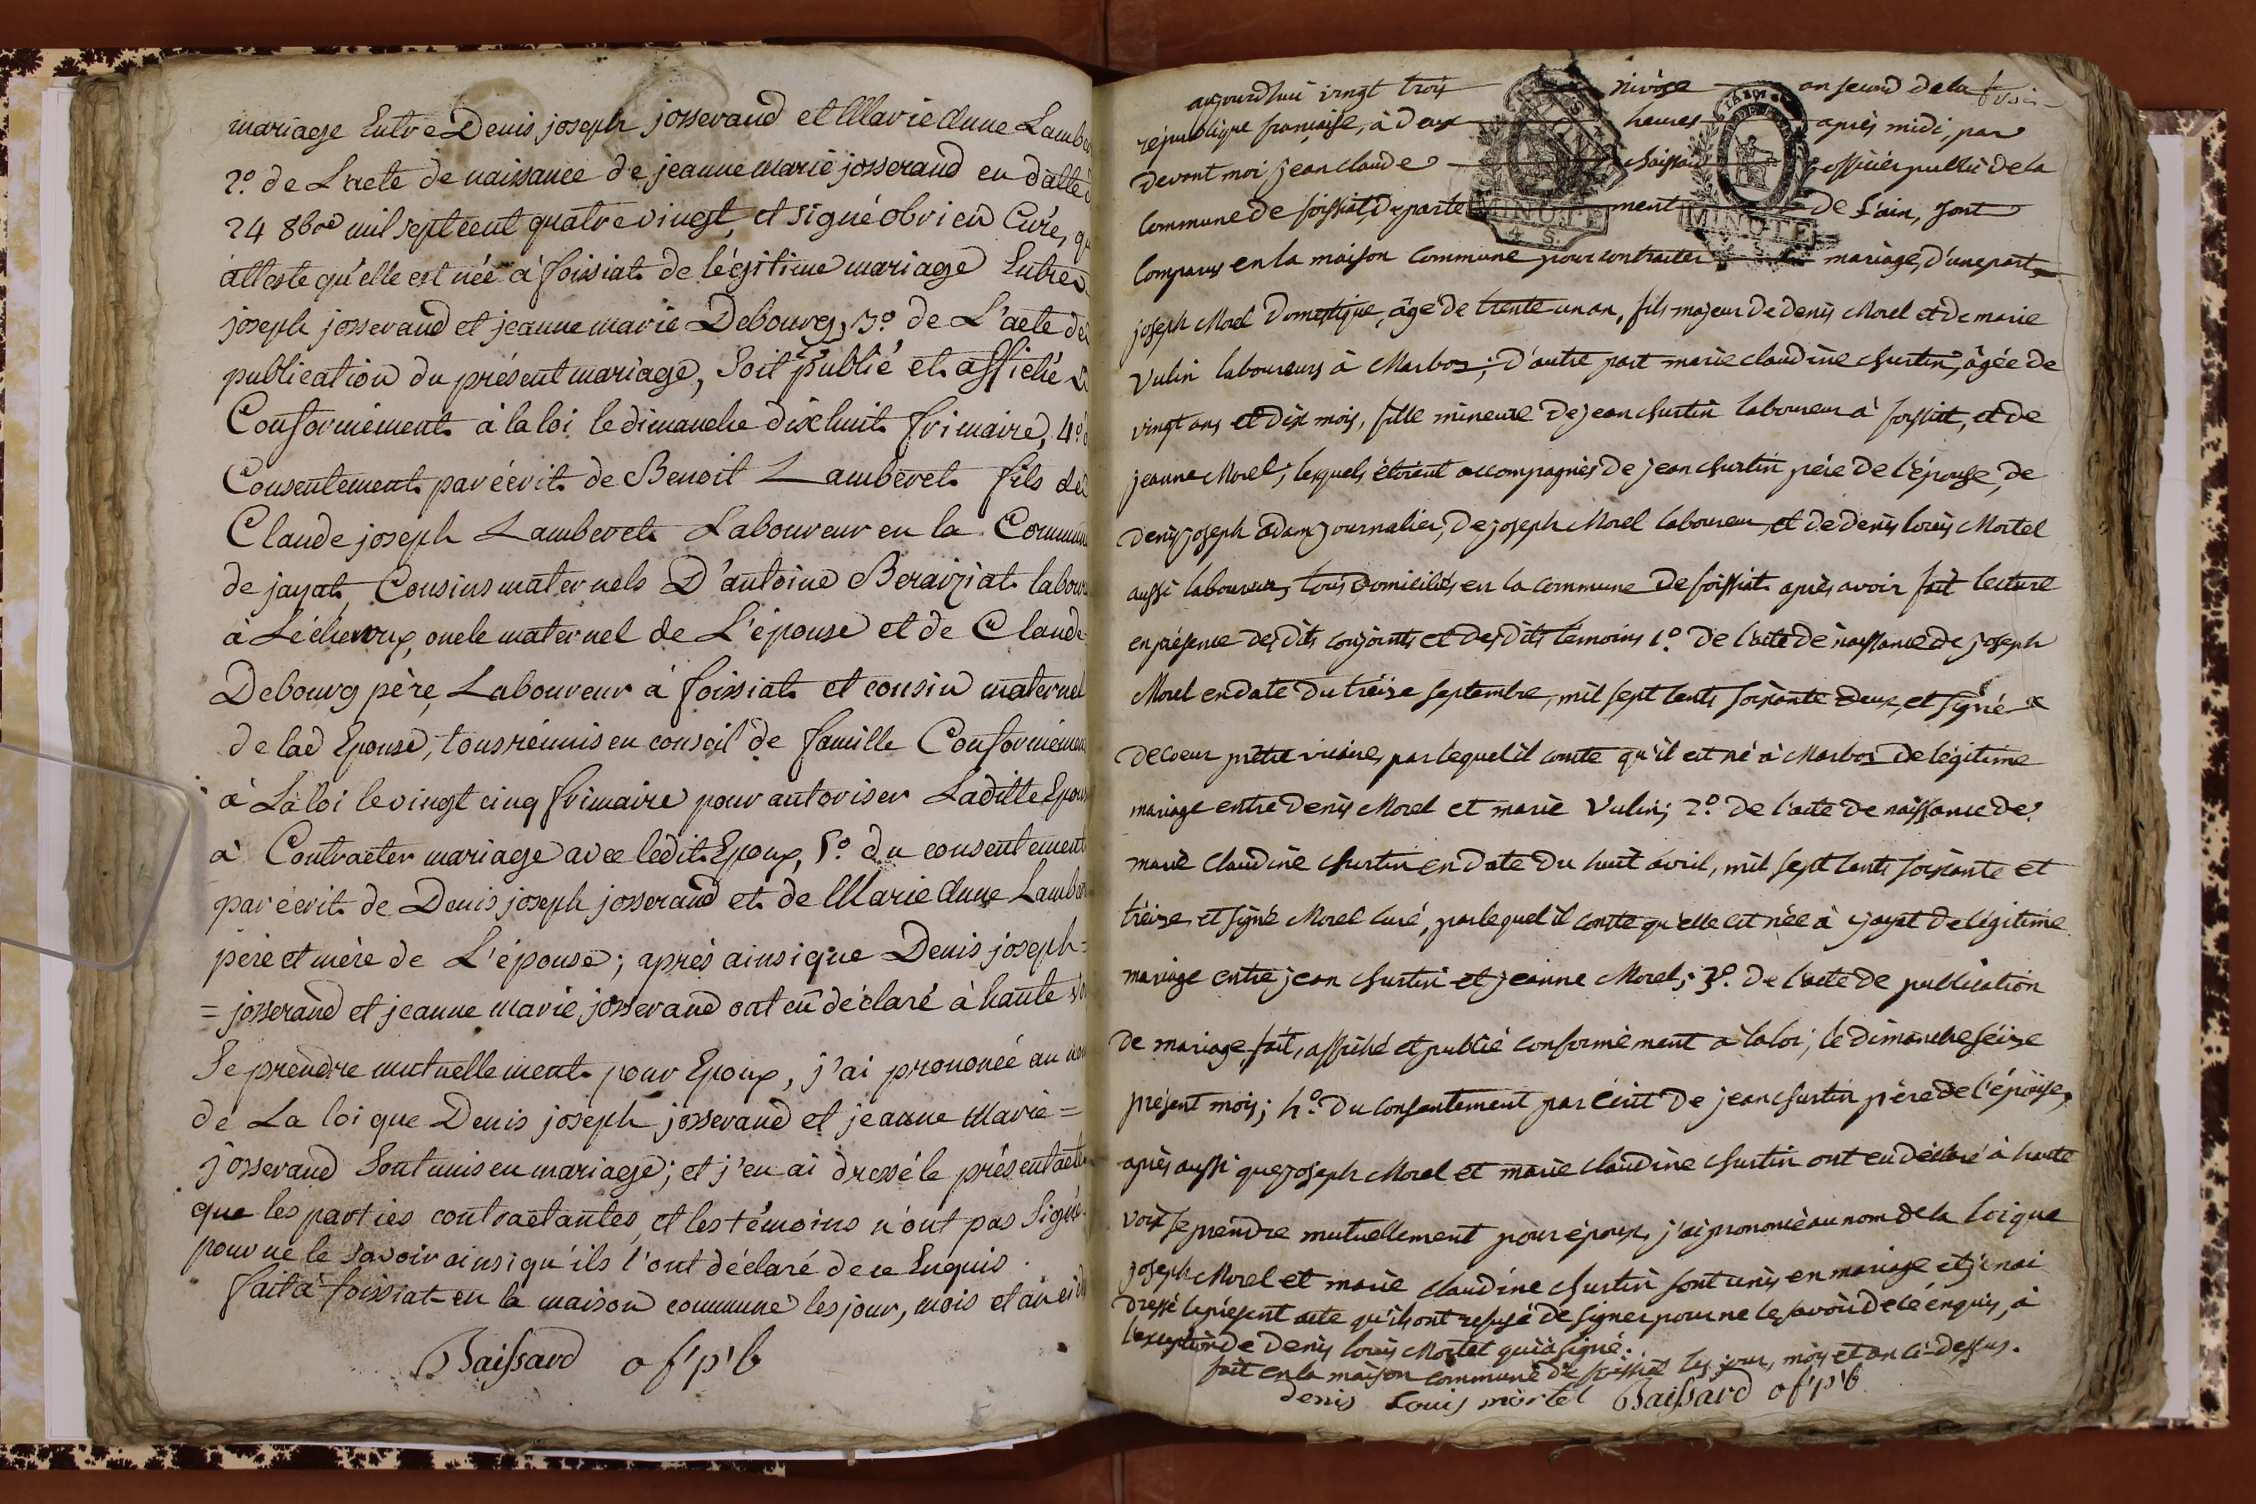 mariage Entre Denis joseph josserand et Marie Anne Lamber
2.º de L'acte de naissance de jeanne marie josserand en datte d
24 8bre mil sept cent quatre vingt, et signé obrien Curé, qu
atteste qu'elle est née à foissiat de légitime mariage Entre
joseph josserand et jeanne marie Debourg, 3.º de L'acte de
publication du présent mariage, Soit publié et affiché
Conformément à la loi le dimanche dixhuit frimaire, 4.º
Consentement par écrit de Benoit Lamberet fils de
Claude joseph Lamberet Laboureur en la Commun
de jayat, Cousins maternels D'antoine Beraiziat labour
à Lécheroux, oncle maternel de L'épouse et de Claude
Debourg père, Laboureur à foissiat et cousin maternel
de lad Epouse, tous réunis en conseil de famille Conformémen
à La loi le vingt cinq frimaire pour autoriser Laditte Epous
à Contracter mariage avec ledit Epoux, 5.º du consentement
par écrit de Denis joseph josserand et de Marie Anne Lamber
père et mère de L'épouse; après ainsi que Denis joseph =
= josserand et jeanne marie josserand ont eû déclaré à haute vo
Se prendre mutuellement pour Epoux, j'ai prononcé au nom
de La loi que Denis joseph josserand et jeanne Marie =
josserand Sont unis en mariage; et j'en ai dressé le présent acte
que les parties contractantes, et les témoins n'ont pas Signé
pour ne le savoir ainsi qu'ils l'ont déclaré de ce Enquis.
fait à foissiat en la maison commune les jour, mois et an ci d
Baissard of'p'b
aujourdhui vingt trois nivôse an second de la
république française, à deux heures après midi, par
devant moi jean claude baissard officier public de la
commune de foissiat, departement de l'ain, sont
comparus en la maison commune pour contracter mariage, d'une part,
joseph Morel domestique, âgé de trente un an, fils majeur de denis Morel et de marie
Vulin laboureurs à Marboz; d'autre part marie claudine churtin, âgée de
vingt ans et dix mois, fille mineure de jean churtin laboureur à foissiat, et de
jeanne Morel; lesquels étoient accompagnés de jean churtin père de l'épouse, de
denis joseph adam journalier, de joseph Morel laboureur, et de denis louis Mortel
aussi laboureur, tous domiciliés en la commune de foissiat après avoir fait lecture
en présence desdits conjoints et desdits temoins 1.º de l'acte de naissance de joseph
Morel en date du trèize septembre, mil sept cents soixante deux, et signé
decoeur prêtre vicaire, par lequel il conste qu'il est né à Marboz de légitime
mariage entre denis Morel et marie Vulin; 2.º de l'acte de naissance de
marie claudine churtin en date du huit avril, mil sept cents soixante et
trèize, et signé Morel curé, par lequel il conste qu'elle est née à jayat de légitime
mariage entre jean churtin et jeanne Morel; 3.º de l'acte de publication
de mariage fait, affiché et publié conformément à la loi, le dimanche séize
présent mois; 4.º du consentement par écrit de jean churtin père de l'épouse,
après aussi que joseph Morel et marie claudine churtin ont eu déclaré à haute
voix se prendre mutuellement pour époux, j'ai prononcé au nom de la loi que
joseph Morel et marie claudine churtin sont unis en mariage et j'en ai
dressé le présent acte qu'ils ont refusé de signer pour ne le savoir de ce enquis, à
l'exception de denis louis Mortel qui a signé.
fait en la maison commune de foissiat les jour, mois et an ci-dessus.
denis Louis mortel Baissard of'p'b
MINUTE
4 S.
MINUTE